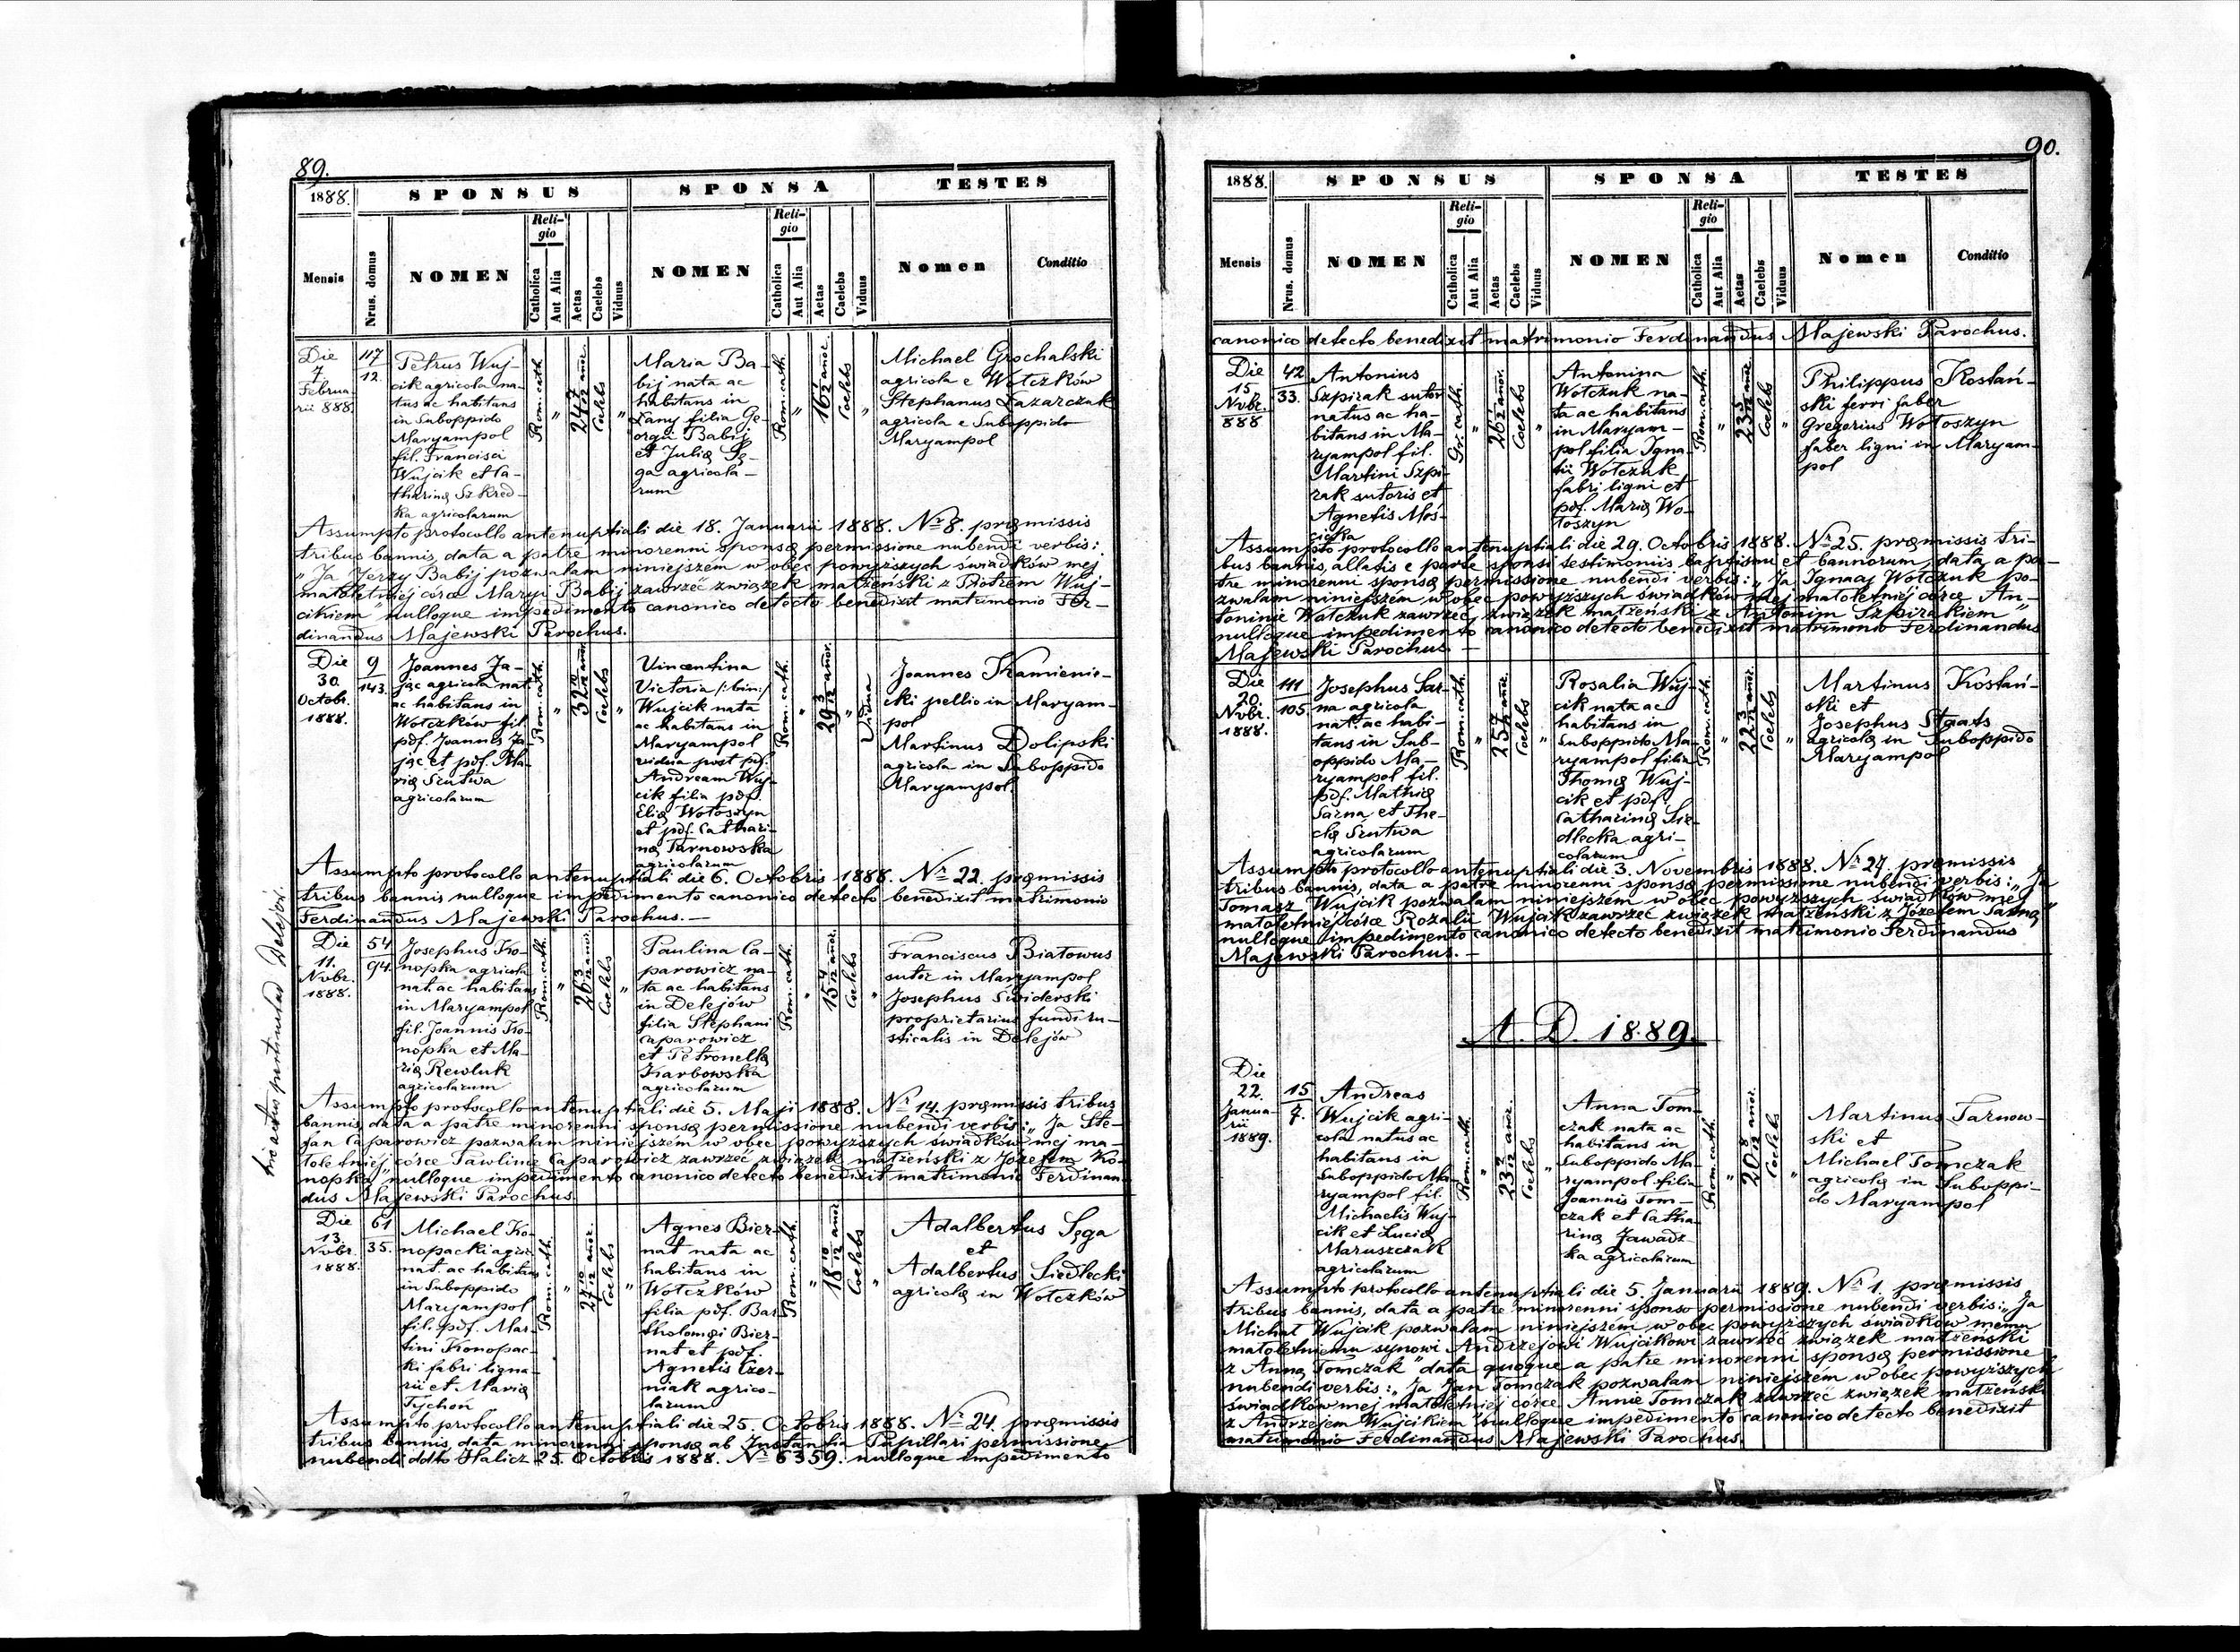 89.
1888.
SPONSUS
SPONSA
TESTES
Mensis
Nrus. domus
NOMEN
Reli-
gio
Catholica
Aut Alia
Aetas
Caelebs
Viduus
NOMEN
Reli-
gio
Catholica
Aut Alia
Aetas
Caelebs
Viduus
Nomen
Conditio
Die
7.
Februa
rii 888.
117
12.
Petrus Wuj-
cik agricola na-
tus ac habitans
in Suboppido
Maryampol
fil. Francisci
Wujcik et Ca-
tharinę Szkred-
ka agricolarum
Rom. cath.
"
24 7/12 añor.
Coelebs
"
Maria Ba-
bij nata ac
habitans in
Łany filia Ge-
orgii Babij
et Julię Sę-
ga agricola-
rum
Rom. cath.
"
16 1/12 añor.
Coelebs
"
Michael Grochalski
agricola e Wołczków
Stephanus Łazarczuk
agricola e Suboppido
Maryampol
Assumpto protocollo antenuptiali die 18. Januarii 1888. Nr 8. pręmissis
tribus bannis, data a patre minorenni sponsę permissione nubendi verbis:
"Ja Jerzy Babij pozwalam niniejszém w obec powyższych świadków mej
małoletniéj córce Maryi Babij zawrzéć związek małżeński z Piotrem Wuj-
cikiem" nulloque impedimento canonico detecto benedixit matrimonio Fer-
dinandus Majewski Parochus.
Die
30.
Octobr.
1888.
9
143.
Joannes Ja-
jąc agricola nat.
ac habitans in
Wołczków fil.
pdf. Joannis Ja-
jąc et pdf. Ma-
rię Szutwa
agricolarum
Rom. cath.
"
32 10/12 añor.
Coelebs
"
Vincentina
Victoria /:bin:/
Wujcik nata
ac habitans in
Maryampol
vidua post pdf.
Andream Wuj-
cik filia pdf.
Elię Wołoszyn
et pdf. Cathari-
nę Tarnowska
agricolarum
Rom. cath.
"
29 3/12 añor.
"
Vidua
Joannes Kamienie-
cki pellio in Maryam-
pol
Martinus Dolipski
agricola in Suboppido
Maryampol.
Assumpto protocollo antenuptiali die 6. Octobris 1888. Nr 22. pręmissis
tribus bannis nulloque impedimento canonico detecto benedixit matrimonio
Ferdinandus Majewski Parochus. —
hic actus pertinet ad Delejów.
Die
11.
Nvbr.
1888.
54
94.
Josephus Ko-
nopka agricola
nat. ac habitans
in Maryampol
fil. Joannis Ko-
nopka et Ma-
rię Rewluk
agricolarum
Rom. cath.
"
26 3/12 añor.
Coelebs
"
Paulina Ca-
parowicz na-
ta ac habitans
in Delejów
filia Stephani
Caparowicz
et Petronellę
Karbowska
agricolarum
Rom. cath.
"
15 4/12 añor.
Coelebs
"
Franciscus Białowus
sutor in Maryampol
Josephus Świderski
proprietarius fundi ru-
sticalis in Delejów
Assumpto protocollo antenuptiali die 5. Maji 1888. Nr 14. pręmissis tribus
bannis, data a patre minorenni sponsę permissione nubendi verbis: "Ja Ste-
fan Caparowicz pozwalam niniejszém w obec powyższych świadków mej ma-
łoletniéj córce Pawlinie Caparowicz zawrzéć związek małżeński z Józefem Ko-
nopką" nulloque impedimento canonico detecto benedixit matrimonio Ferdinan-
dus Majewski Parochus.
Die
13.
Nvbr.
1888.
61
35.
Michael Ko-
nopacki agric.
nat. ac habitans
in Suboppido
Maryampol
fil. pdf. Mar-
tini Konopac-
ki fabri ligna-
rii et Marię
Tychoń
Rom. cath.
"
27 10/12 añor.
Coelebs
"
Agnes Bier-
nat nata ac
habitans in
Wołczków
filia pdf. Bar
tholomęi Bier-
nat et pdf.
Agnetis Czer-
niak agrico-
larum
Rom. cath.
"
18 10/12 añor.
Coelebs
"
Adalbertus Sęga
et
Adalbertus Siedlecki
agricolę in Wołczków
Assumpto protocollo antenuptiali die 25. Octobris 1888. Nr 24. pręmissis
tribus bannis, data minorenni sponsę ab Instantia Pupillari permissione
nubendi ddto Halicz 25. Octobris 1888. Nr 6359. nulloque impedimento
90.
1888.
SPONSUS
SPONSA
TESTES
Mensis
Nrus. domus
NOMEN
Reli-
gio
Catholica
Aut Alia
Aetas
Caelebs
Viduus
NOMEN
Reli-
gio
Catholica
Aut Alia
Aetas
Caelebs
Viduus
Nomen
Conditio
canonico detecto benedixit matrimonio Ferdinandus Majewski Parochus.
Die
15.
Nvbr.
888
42
33.
Antonius
Szpirak sutor
natus ac ha-
bitans in Ma-
ryampol fil.
Martini Szpi-
rak sutoris et
Agnetis Moś-
cicka
Gr. cath.
"
26 1/12 añor.
Coelebs
"
Antonina
Wołczuk na-
ta ac habitans
in Maryam-
pol filia Igna-
tii Wołczuk
fabri ligni et
pdf. Marię Wo-
łoszyn
Rom. cath.
"
23 5/12 añor.
Coelebs
"
Philippus Kostań-
ski ferri faber
Gregorius Wołoszyn
faber ligni in Maryam-
pol
Assumpto protocollo antenuptiali die 29. Octobris 1888. Nr 25. pręmissis tri-
bus bannis, allatis e parte sponsi testimoniis baptismi et bannorum, data a pa-
tre minorenni sponsę permissione nubendi verbis: "Ja Ignacy Wołczuk po-
zwalam niniejszém w obec powyższych świadków mej małoletniéj córce An-
toninie Wołczuk zawrzéć związek małżeński z Antonim Szpirakiem"
nulloque impedimento canonico detecto benedixit matrimonio Ferdinandus
Majewski Parochus. —
Die
20.
Nvbr.
1888.
111
105.
Josephus Sar-
na agricola
nat. ac habi-
tans in Sub-
oppido Ma-
ryampol fil.
pdf. Mathię
Sarna et The-
clę Szutwa
agricolarum
Rom. cath.
"
25 7/12 añor.
Coelebs
"
Rosalia Wuj-
cik nata ac
habitans in
Suboppido Ma-
ryampol filia
Thomę Wuj-
cik et pdf.
Catharinę Sie-
dlecka agri-
colarum
Rom. cath.
"
22 3/12 añor.
Coelebs
"
Martinus Kostań-
ski et
Josephus Staats
agricolę in Suboppido
Maryampol
Assumpto protocollo antenuptiali die 3. Novembris 1888. Nr 27. pręmissis
tribus bannis, data a patre minorenni sponsę permissione nubendi verbis: "Ja
Tomasz Wujcik pozwalam niniejszém w obec powyższych świadków mej
małoletniéj córce Rozalii Wujcik zawrzéć związek małżeński z Józefem Sarną"
nulloque impedimento canonico detecto benedixit matrimonio Ferdinandus
Majewski Parochus. —
A. D. 1889.
Die
22.
Janua-
rii
1889.
15
7.
Andreas
Wujcik agri-
cola natus ac
habitans in
Suboppido Ma-
ryampol fil.
Michaelis Wuj-
cik et Lucię
Maruszczak
agricolarum
Rom. cath.
"
23 2/12 añor.
Coelebs
"
Anna Tom-
czak nata ac
habitans in
Suboppido Ma-
ryampol filia
Joannis Tom-
czak et Catha-
rinę Zawadz-
ka agricolarum
Rom. cath.
"
20 8/12 añor.
Coelebs
"
Martinus Tarnow-
ski et
Michael Tomczak
agricolę in Suboppi-
do Maryampol
Assumpto protocollo antenuptiali die 5. Januarii 1889. Nr 1. pręmissis
tribus bannis, data a patre minorenni sponso permissione nubendi verbis: "Ja
Michał Wujcik pozwalam niniejszém w obec powyższych świadków memu
małoletniemu synowi Andrzejowi Wujcikowi zawrzéć związek małżeński
z Anną Tomczak" data quoque a patre minorenni sponsę permissione
nubendi verbis: "Ja Jan Tomczak pozwalam niniejszém w obec powyższych
świadków mej małoletniéj córce Annie Tomczak zawrzéć związek małżeński
z Andrzejem Wujcikiem" nulloque impedimento canonico detecto benedixit
matrimonio Ferdinandus Majewski Parochus.